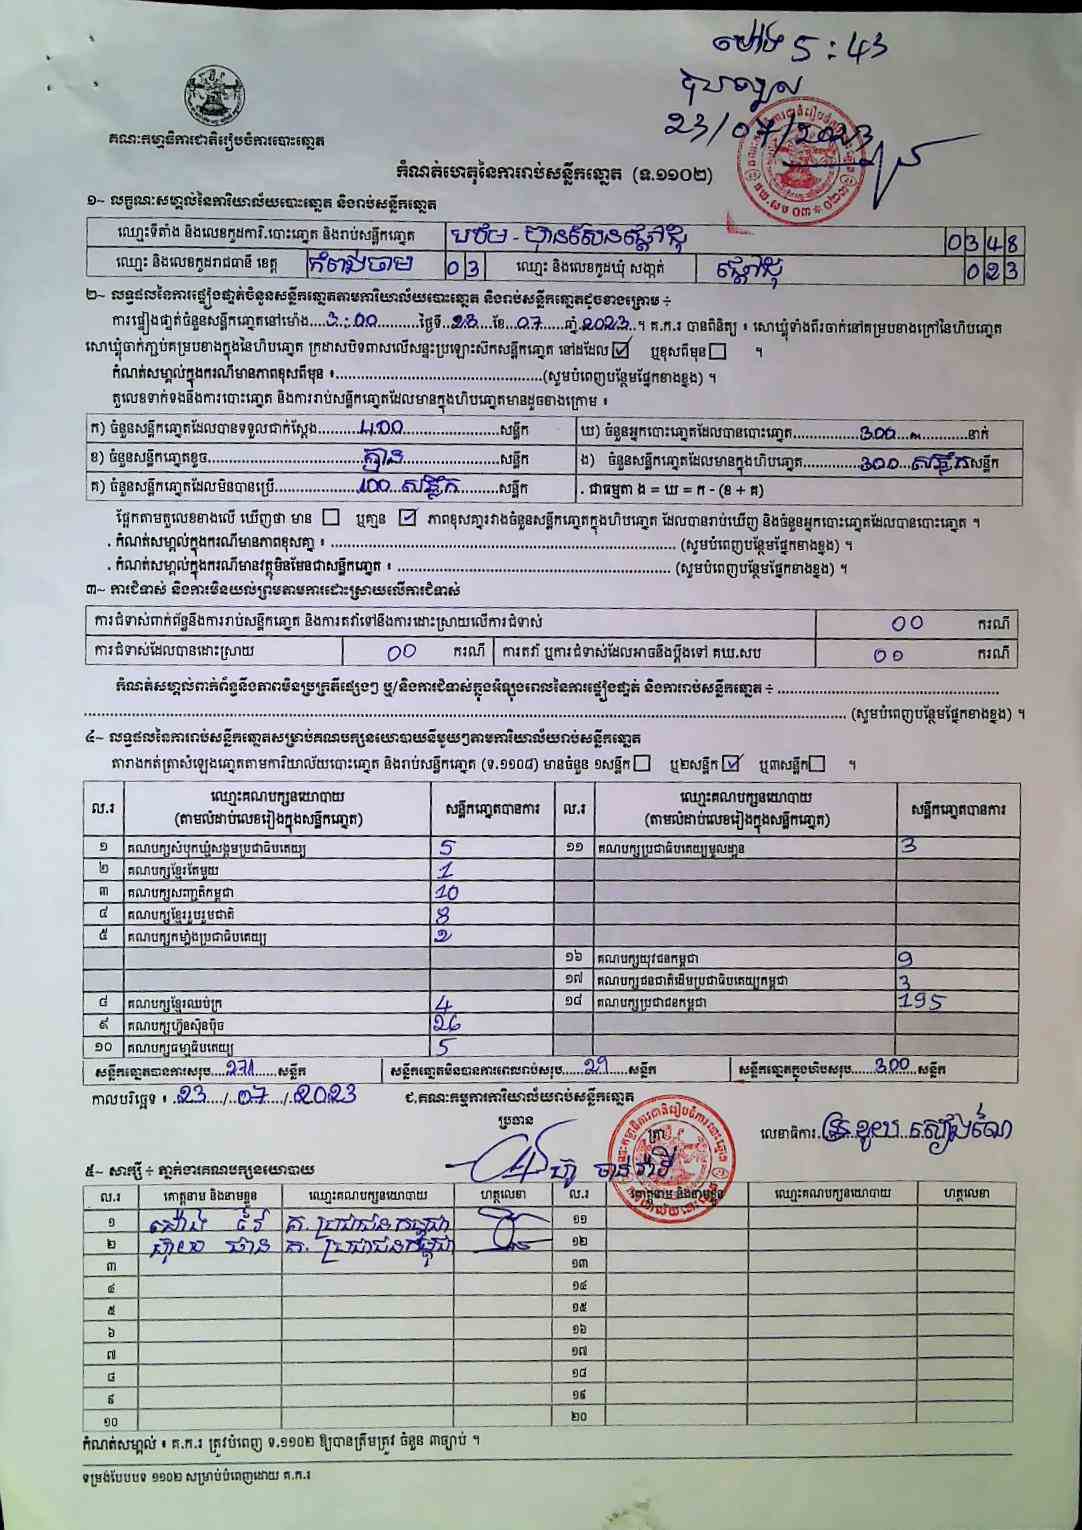 ម៉ោង 5:43
បានទទួល
23/07/2023
គណៈកម្មាធិការជាតិរៀបចំការបោះឆ្នោត
កំណត់ហេតុនៃការរាប់សន្លឹកឆ្នោត (ទ.១១០២)
១~ លក្ខណៈសម្គាល់នៃការិយាល័យបោះឆ្នោត និងរាប់សន្លឹកឆ្នោត
ឈ្មោះទីតាំង និងលេខកូដការិ.បោះឆ្នោត និងរាប់សន្លឹកឆ្នោត បឋម - ហ៊ុនសែនផ្តៅជុំ 0348
ឈ្មោះ និងលេខកូដរាជធានី ខេត្ត កំពង់ចាម 03 ឈ្មោះ និងលេខកូដឃុំ សង្កាត់ ផ្តៅជុំ 023
២~ លទ្ធផលនៃការផ្ទៀងផ្ទាត់ចំនួនសន្លឹកឆ្នោតតាមការិយាល័យបោះឆ្នោត និងរាប់សន្លឹកឆ្នោតដូចខាងក្រោម ÷
ការផ្ទៀងផ្ទាត់ចំនួនសន្លឹកឆ្នោតនៅម៉ោង....3:00..........ថ្ងៃទី..23..ខែ...07....ឆ្នាំ.2023..។ គ.ក.រ បានពិនិត្យ ៖ សោឃ្លុំទាំងពីរចាក់នៅគម្របខាងក្រៅនៃហិបឆ្នោត
សោឃ្លុំចាក់ភ្ជាប់គម្របខាងក្នុងនៃហិបឆ្នោត ក្រដាសបិទពាសលើសន្ទះប្រឡោះស៊ីកសន្លឹកឆ្នោត នៅដដែល ☑ ឬខុសពីមុន ☐ ។
កំណត់សម្គាល់ក្នុងករណីមានភាពខុសពីមុន ៖..............................................(សូមបំពេញបន្ថែមផ្នែកខាងខ្នង) ។
តួលេខទាក់ទងនឹងការបោះឆ្នោត និងការរាប់សន្លឹកឆ្នោតដែលមានក្នុងហិបឆ្នោតមានដូចខាងក្រោម ៖
ក) ចំនួនសន្លឹកឆ្នោតដែលបានទទួលជាក់ស្តែង.........400......................សន្លឹក ឃ) ចំនួនអ្នកបោះឆ្នោតដែលបានបោះឆ្នោត...............300..............នាក់
ខ) ចំនួនសន្លឹកឆ្នោតខូច...................................គ្មាន......................សន្លឹក ង) ចំនួនសន្លឹកឆ្នោតដែលមានក្នុងហិបឆ្នោត..............300...សន្លឹកសន្លឹក
គ) ចំនួនសន្លឹកឆ្នោតដែលមិនបានប្រើ...................100...សន្លឹក.........សន្លឹក . ជាធម្មតា ង = ឃ = ក - (ខ + គ)
ផ្អែកតាមតួលេខខាងលើ ឃើញថា មាន ☐ ឬគ្មាន ☑ ភាពខុសគ្នារវាងចំនួនសន្លឹកឆ្នោតក្នុងហិបឆ្នោត ដែលបានរាប់ឃើញ និងចំនួនអ្នកបោះឆ្នោតដែលបានបោះឆ្នោត ។
. កំណត់សម្គាល់ក្នុងករណីមានភាពខុសគ្នា ៖ .............................................................................. (សូមបំពេញបន្ថែមផ្នែកខាងខ្នង) ។
. កំណត់សម្គាល់ក្នុងករណីមានវត្ថុមិនមែនជាសន្លឹកឆ្នោត ៖ ............................................................. (សូមបំពេញបន្ថែមផ្នែកខាងខ្នង) ។
៣~ ការជំទាស់ និងការមិនយល់ព្រមតាមការដោះស្រាយលើការជំទាស់
ការជំទាស់ពាក់ព័ន្ធនឹងការរាប់សន្លឹកឆ្នោត និងការតវ៉ាទៅនឹងការដោះស្រាយលើការជំទាស់ 00 ករណី
ការជំទាស់ដែលបានដោះស្រាយ 00 ករណី ការតវ៉ា ឬការជំទាស់ដែលអាចនឹងប្តឹងទៅ គឃ.សប 00 ករណី
កំណត់សម្គាល់ពាក់ព័ន្ធនឹងភាពមិនប្រក្រតីផ្សេងៗ ឬ/និងការជំទាស់ក្នុងអំឡុងពេលនៃការផ្ទៀងផ្ទាត់ និងការរាប់សន្លឹកឆ្នោត ÷ ..................................................
.................................................................................................................................................................. (សូមបំពេញបន្ថែមផ្នែកខាងខ្នង) ។
៤~ លទ្ធផលនៃការរាប់សន្លឹកឆ្នោតសម្រាប់គណបក្សនយោបាយនីមួយៗតាមការិយាល័យរាប់សន្លឹកឆ្នោត
តារាងកត់ត្រាសំឡេងឆ្នោតតាមការិយាល័យបោះឆ្នោត និងរាប់សន្លឹកឆ្នោត (ទ.១១០៨) មានចំនួន ១សន្លឹក ☐ ឬ២សន្លឹក ☑ ឬ៣សន្លឹក ☐ ។
ល.រ ឈ្មោះគណបក្សនយោបាយ (តាមលំដាប់លេខរៀងក្នុងសន្លឹកឆ្នោត) សន្លឹកឆ្នោតបានការ ល.រ ឈ្មោះគណបក្សនយោបាយ (តាមលំដាប់លេខរៀងក្នុងសន្លឹកឆ្នោត) សន្លឹកឆ្នោតបានការ
១ គណបក្សសំបុកឃ្មុំសង្គមប្រជាធិបតេយ្យ 5 ១១ គណបក្សប្រជាធិបតេយ្យមូលដ្ឋាន 3
២ គណបក្សខ្មែរតែមួយ 1
៣ គណបក្សសញ្ជាតិកម្ពុជា 10
៤ គណបក្សខ្មែររួបរួមជាតិ 8
៥ គណបក្សកម្លាំងប្រជាធិបតេយ្យ 2
១៦ គណបក្សយុវជនកម្ពុជា 9
១៧ គណបក្សជនជាតិដើមប្រជាធិបតេយ្យកម្ពុជា 3
៨ គណបក្សខ្មែរឈប់ក្រ 4 ១៨ គណបក្សប្រជាជនកម្ពុជា 195
៩ គណបក្សហ៊្វុនស៊ិនប៉ិច 26
១០ គណបក្សធម្មាធិបតេយ្យ 5
សន្លឹកឆ្នោតបានការសរុប....271......សន្លឹក សន្លឹកឆ្នោតមិនបានការពេលរាប់សរុប......29......សន្លឹក សន្លឹកឆ្នោតក្នុងហិបសរុប......300...សន្លឹក
កាលបរិច្ឆេទ ៖ .23..../..07..../.2023 ជ.គណៈកម្មការការិយាល័យរាប់សន្លឹកឆ្នោត
ប្រធាន
ត្រា
លេខាធិការ.
៥~ សាក្សី ÷ ភ្នាក់ងារគណបក្សនយោបាយ
ល.រ គោត្តនាម និងនាមខ្លួន ឈ្មោះគណបក្សនយោបាយ ហត្ថលេខា ល.រ គោត្តនាម និងនាមខ្លួន ឈ្មោះគណបក្សនយោបាយ ហត្ថលេខា
១ គ. ប្រជាជនកម្ពុជា ១១
២ គ. ប្រជាជនកម្ពុជា ១២
៣ ១៣
៤ ១៤
៥ ១៥
៦ ១៦
៧ ១៧
៨ ១៨
៩ ១៩
១០ ២០
កំណត់សម្គាល់ ៖ គ.ក.រ ត្រូវបំពេញ ទ.១១០២ ឱ្យបានត្រឹមត្រូវ ចំនួន ៣ច្បាប់ ។
ទម្រង់បែបបទ ១១០២ សម្រាប់បំពេញដោយ គ.ក.រ